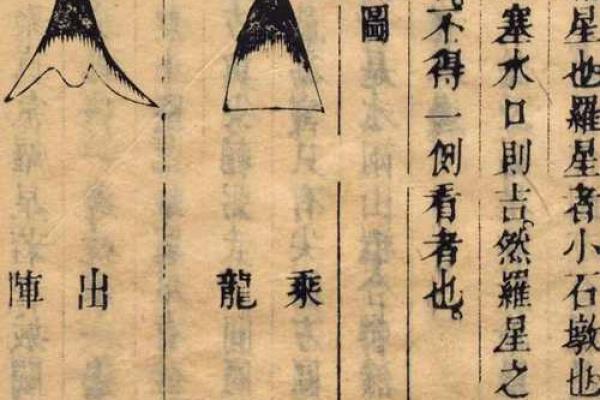 星也羅星者小石墩也
塞水口則吉。然羅星之
不得一側看者也。
圖
乘龍
出陣